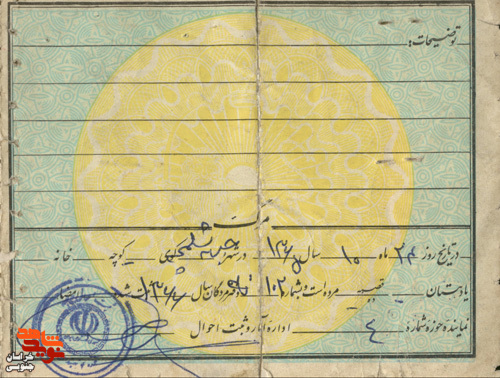 توضیحات:
مرگ
در تاریخ روز ۲۴ ماه ۱۰ سال ۱۳۶۵ در شهر شلمچه کوچه خانه
یا دهستان قصبه مرده است و بشماره ۱۰۲ دفتر مردگان سال ۱۳۶۶ ثبت شد
نماینده حوزه شماره ۴ اداره آمار و ثبت احوال
خراسان
جنوبی